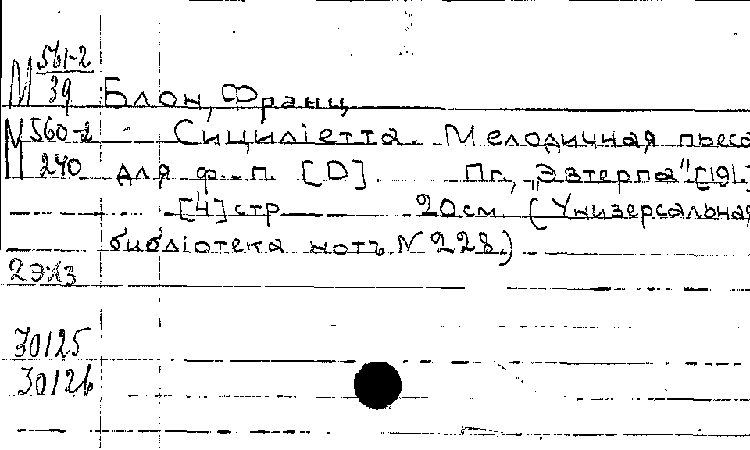 М 561-2/39 Блон, Франц
М 560-2/240 Сициліетта. Мелодичная пьеса
для ф.-п. [D]. Пг., "Эвтерпа" [191-]
[4] стр 20 см. (Унизерсальная
библіотека нотъ N 228.)
2 экз
30125
30126